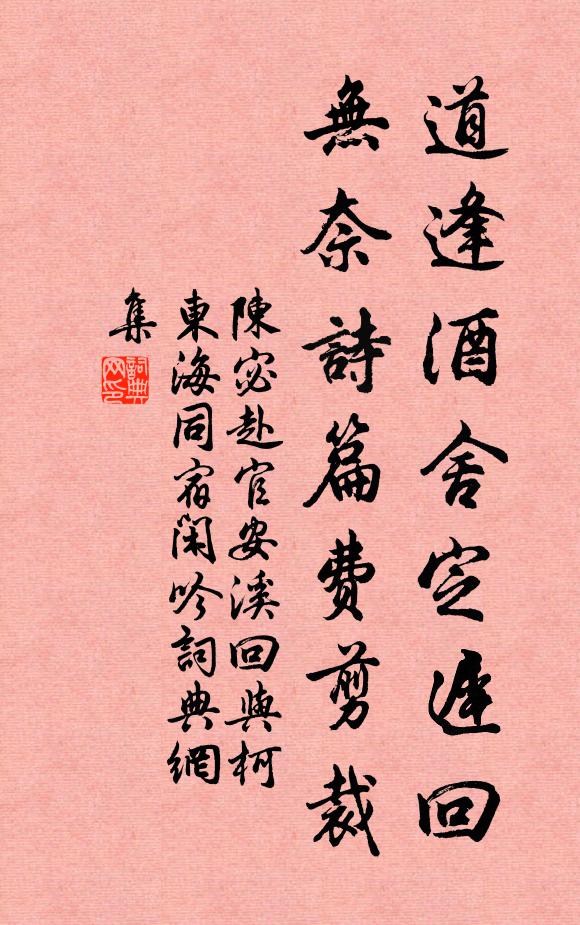 道逢酒舍定遲回
無奈詩篇費剪裁
陳宓赴官安溪回與柯
東海同宿閑吟詞典網
集
詞典
網印